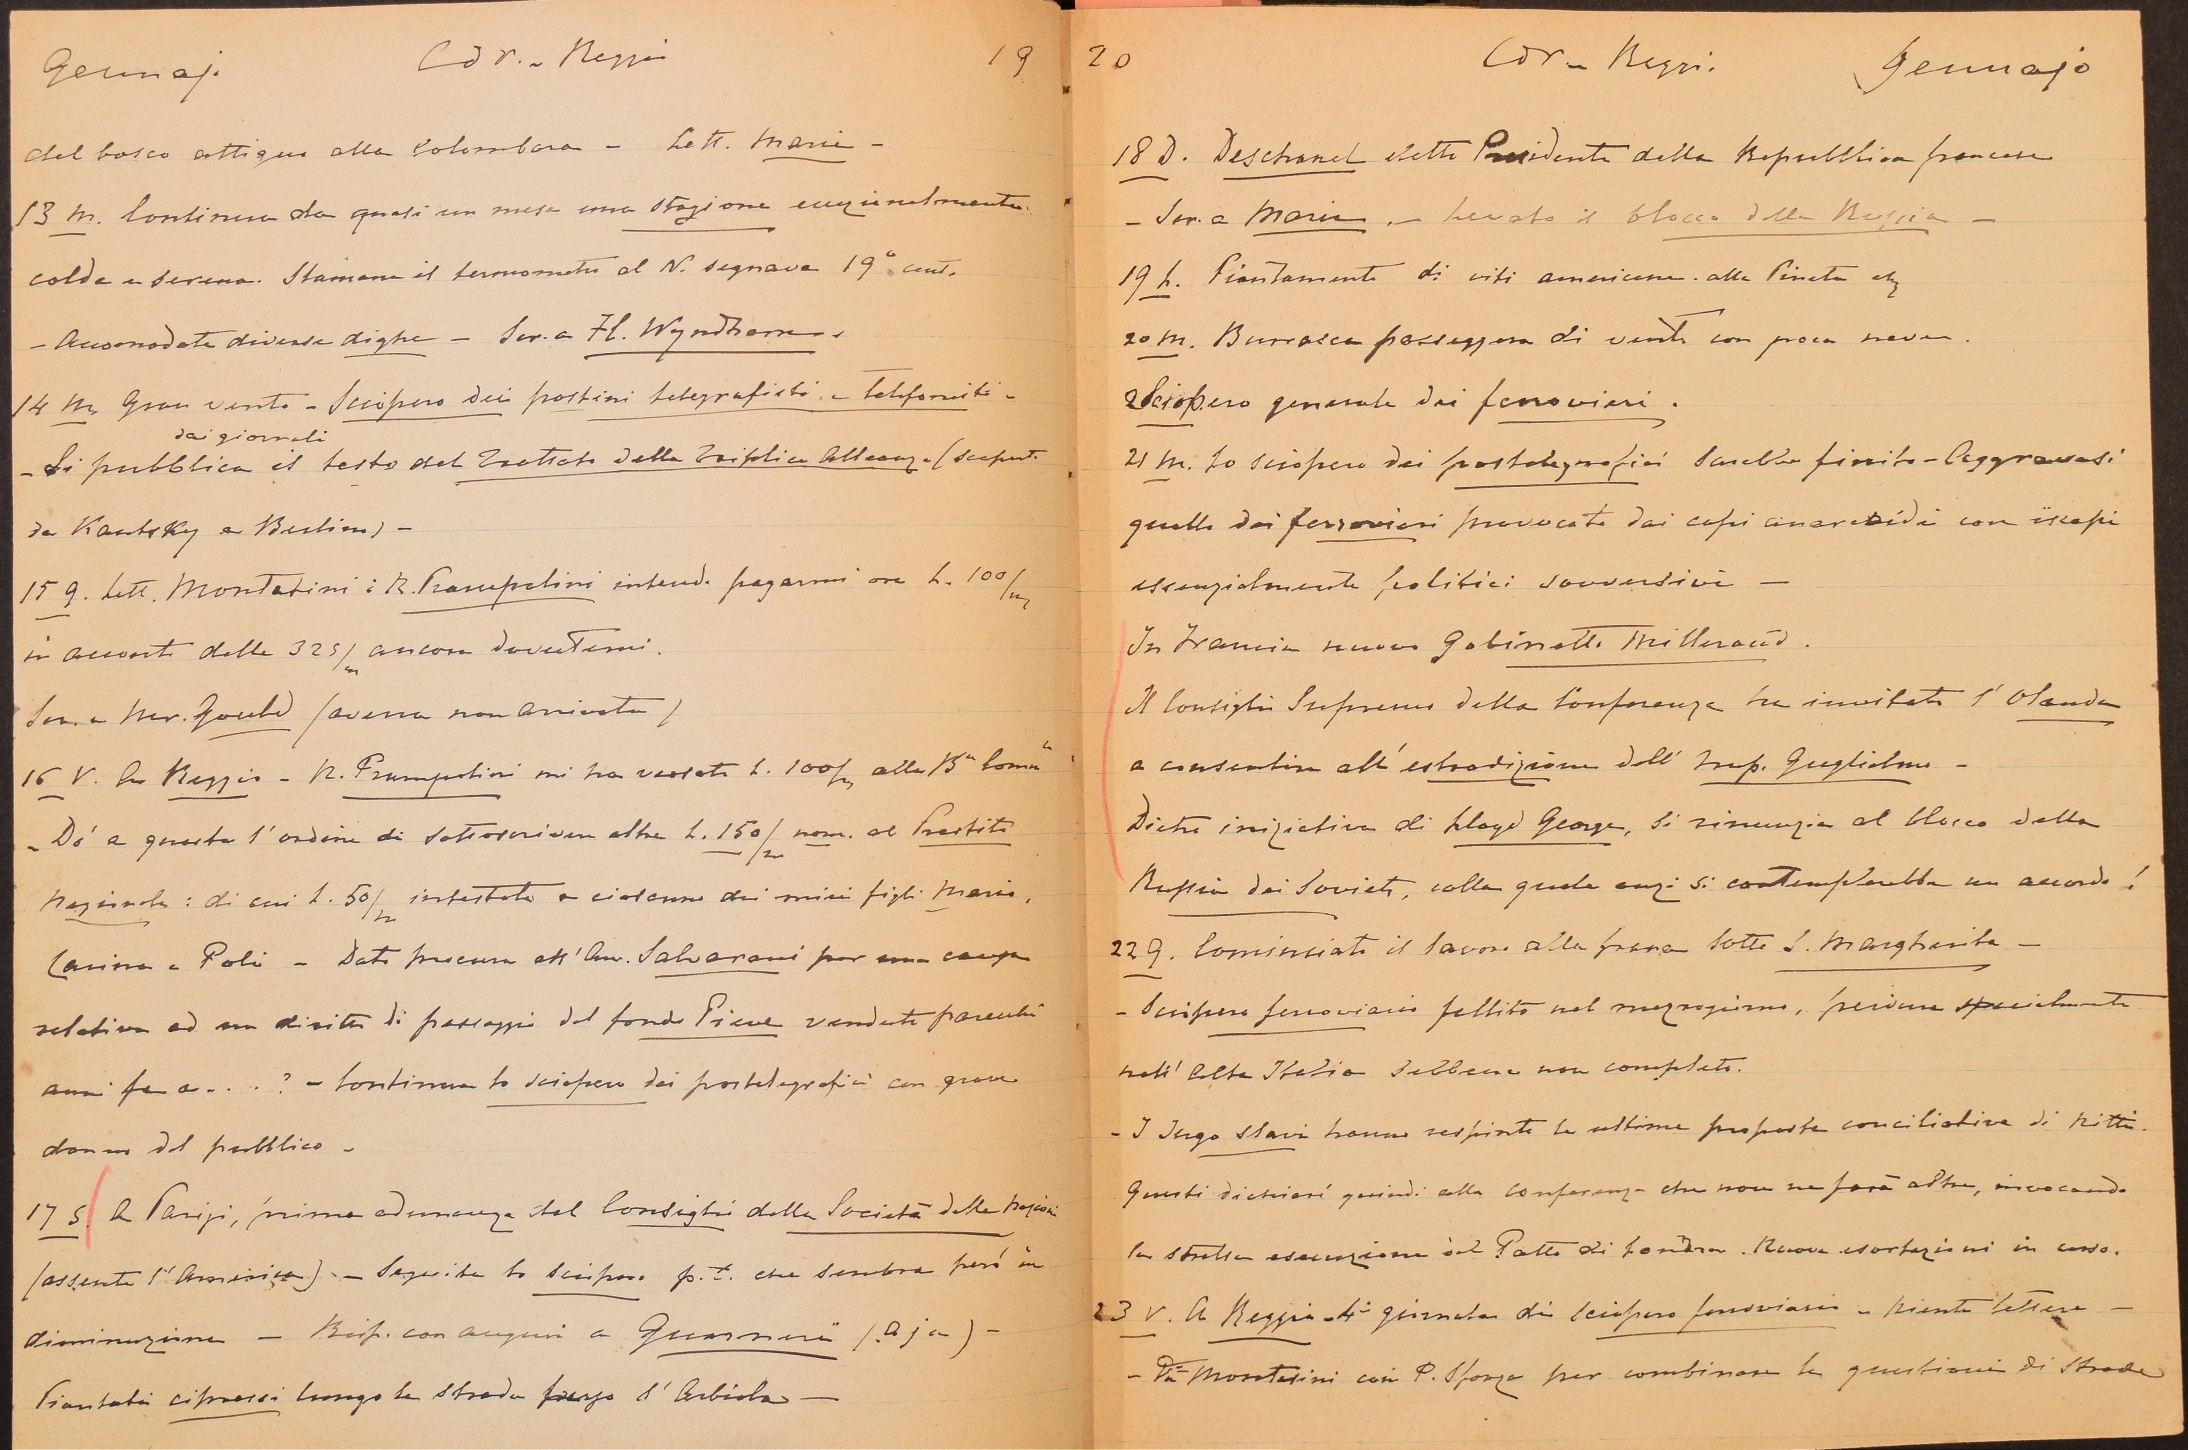 Gennajo Cor. - Reggio 19
del bosco attiguo alla Colombara - Lett. Maria -
13 M. Continua da quasi un mese una stagione eccezionalmente
calda e serena. Stamane il termometro al N. segnava 19° cent.
- Accomodate diverse dighe - Scr. a Fl. Wyndham.
14 M. Gran vento - Sciopero dei postini telegrafisti e telefonisti -
dai giornali
- Si pubblica il testo del Trattato della Triplice Alleanza (scoperto
da Kautsky a Berlino) -
15 G. Lett. Montasini: R. Prampolini intende pagarmi ora L. 100/m
in acconto delle 325/m ancora dovutemi.
Scr. a Mr. Gould (avena non arrivata)
16 V. A Reggio - R. Prampolini mi ha versato L. 100/m alla Bca Comm
- Dò a questa l'ordine di sottoscrivere altre L. 150/m nom. al Prestito
Nazionale: di cui L. 50/m intestate a ciascuno dei miei figli Mario,
Carina e Poli - Dato procura all'Avv. Salvarani per una causa
relativa ad un diritto di passaggio del fondo Pieve venduto parecchi
anni fa a . . . ? - Continua lo sciopero dei postelegrafici con grave
danno del pubblico -
17 S. A Parigi, prima adunanza del Consiglio della Società delle Nazioni
(assente l'America) - Seguita lo sciopero p.t. che sembra però in
diminuzione - Risp. con auguri a Guarneri (Aja) -
Piantati cipressi lungo la strada l'Arbiola -
20 Cor - Reggi. Gennajo
18 D. Deschanel eletto Presidente della Repubblica francese
- Scr. a Maria. - Levato il blocco della Russia -
19 L. Piantamento di viti americane alla Pineta etc
20 M. Burrasca passeggera di vento con poca neve.
Sciopero generale dei ferrovieri.
21 M. Lo sciopero dei postelegrafici sarebbe finito - Aggravasi
quello dei ferrovieri provocato dai capi anarcoidi con iscopi
essenzialmente politici sovversivi -
In Francia nuovo Gabinetto Millerand.
Il Consiglio Supremo della Conferenza ha invitato l'Olanda
a consentire all'estradizione dell'Imp. Guglielmo -
Dietro iniziativa di Lloyd George, si rinunzia al blocco della
Russia dei Soviets, colla quale anzi si contemplerebbe un accordo!
22 G. Cominciato il lavoro alla frana sotto S. Margherita -
- Sciopero ferroviario fallito nel mezzogiorno, perdura specialmente
nell'Alta Italia sebbene non completo.
- I Jugo slavi hanno respinto le ultime proposte conciliative di Nitti.
Questi dichiarò quindi alla Conferenza che non ne farà altre, invocando
la stretta esecuzione del Patto di Londra. Nuove esortazioni in corso.
23 V. A Reggio - 4a giornata di sciopero ferroviario - Niente lettere -
- Montasini con P. Sforza per combinare la questione di strade